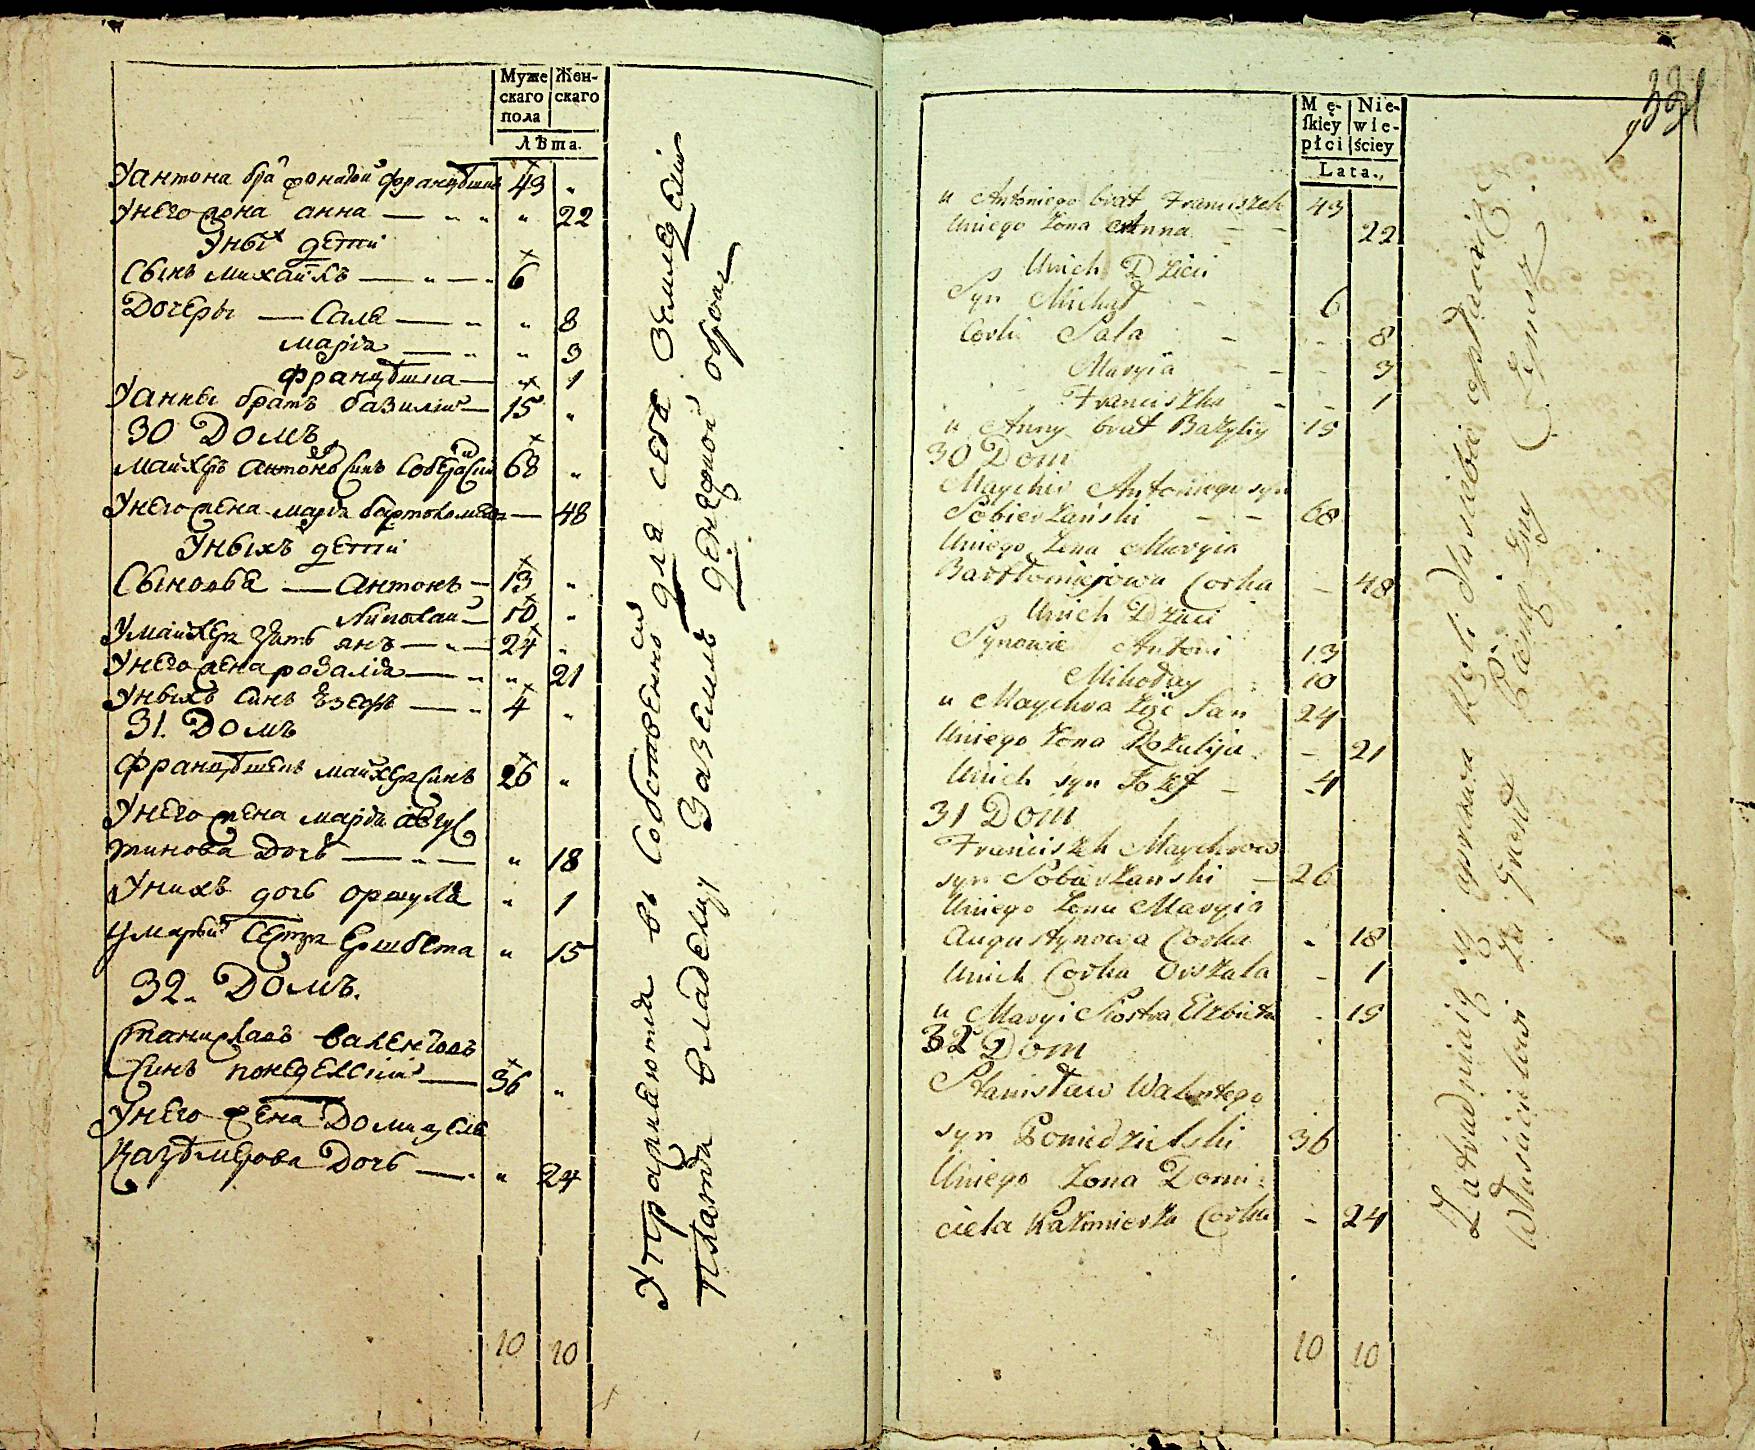 Муже
скаго
пола
Жен-
скаго
Лѣта.
Уантона бра франц 43 "
Унего жена анна — " " " 22
Уных дети
Сынъ михайлъ — " — " 6
Дочеры — Сала — " " 8
марїа — " " 3
францишка — " 1
Уанны братъ базилий — 15 "
30 Домъ
Майхеръ антоновъ синъ 68 "
Унего жена марїа бартоломеева — 48
Уныхъ дети
Сыновья — антонъ — 13 "
Николай — 10 "
Умайхера зять янъ — " — 24 "
Унего жена розалїа — " " 21
Уныхъ синъ Юзефъ — " 4 "
31. Домъ
францишекъ майхера синъ 26 "
Унего жена марїа авгус
тинова дочь — " — " 18
Унихъ дочь оршула " 1
Умарыи сестра Елжбета " 15
32. Домъ.
Станиславъ валентовъ
синъ понедельскій — 36 "
Унего жена Домицеля
Казимерова дочь — " " 24
10 10
Упражняются въ собственно для себя земледелии
Платя владельцу за земль денежной оброк
391
Mę-
skiey
płci
Nie-
wie-
ściey
Lata.,
u Antoniego brat Franciszek 43
Uniego Żona Anna - - 22
Unich Dzieci
Syn Michał - - 6
Corki Sala - - 8
Maryia - - 3
Franciszka - - 1
u Anny brat Bazyliy 15
30 Dom
Maycher Antoniego syn
Sobierżański - - 68
Uniego Żona Maryia
Bartłomiejowa Corka - 48
Unich Dzieci
Synowie Antoni 13
Mikołay 10
u Maychra Zięć Jan 24
Uniego Żona Rozalija - 21
Unich syn Jozef - 4
31 Dom
Franciszek Maychrow
syn Sobierżanski — 26
Uniego Żona Maryia
Augustynowa Corka - 18
Unich Corka Orszula - 1
u Maryi Siostra Elzbieta - 15
32 Dom
Stanisław Walentego
syn Poniedzielski 36
Uniego Żona Domi:
cela Kazimierza Corka - 24
10 10
Zatrudniaią się uprawą Roli dla siebie opłacaiąc
Właścicielowi za Grunt Pieniężny Czynsz